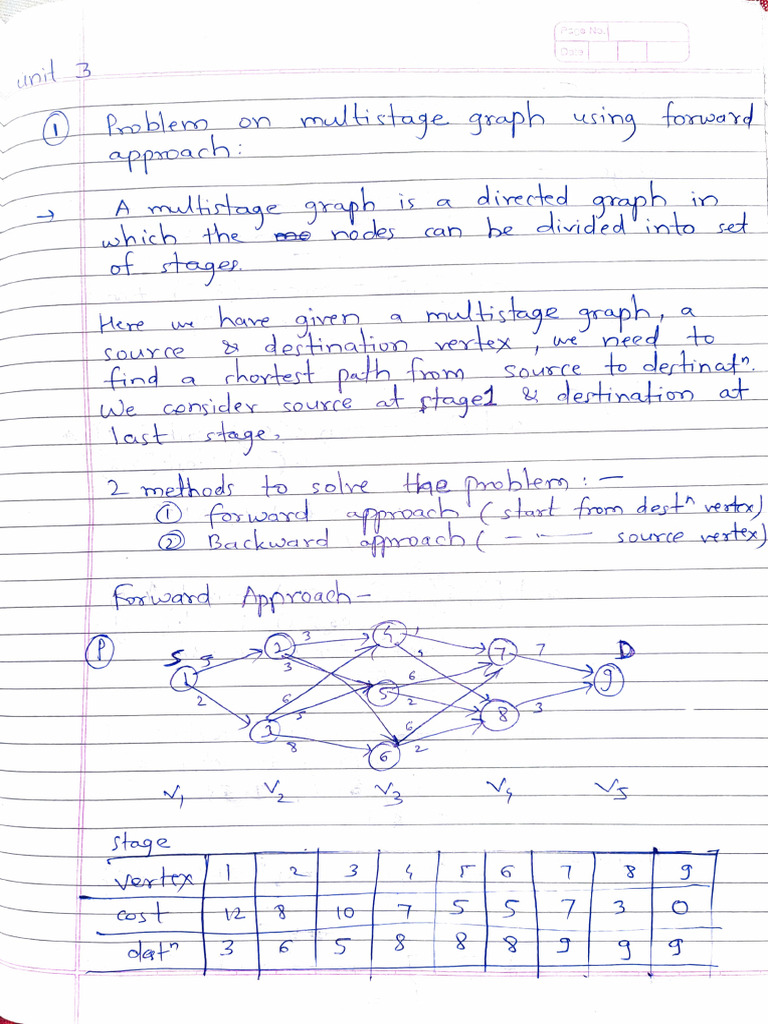 Page No.
Date
unit 3
① Problem on multistage graph using forward
approach:
→ A multistage graph is a directed graph in
which the nodes can be divided into set
of stages.
Here we have given a multistage graph, a
source & destination vertex, we need to
find a shortest path from source to destinatⁿ.
We consider source at stage1 & destination at
last stage.
2 methods to solve the problem : —
① forward approach (start from destⁿ vertex)
② Backward approach ( — " — source vertex)
Forward Approach –
P
S 5 2 3 4 1 7 7 D
1 3 5 6 9
2 6 5 2 8 3
3 5 6
8 6 2
V1 V2 V3 V4 V5
stage
vertex 1 2 3 4 5 6 7 8 9
cost 12 8 10 7 5 5 7 3 0
datⁿ 3 6 5 8 8 8 9 9 9